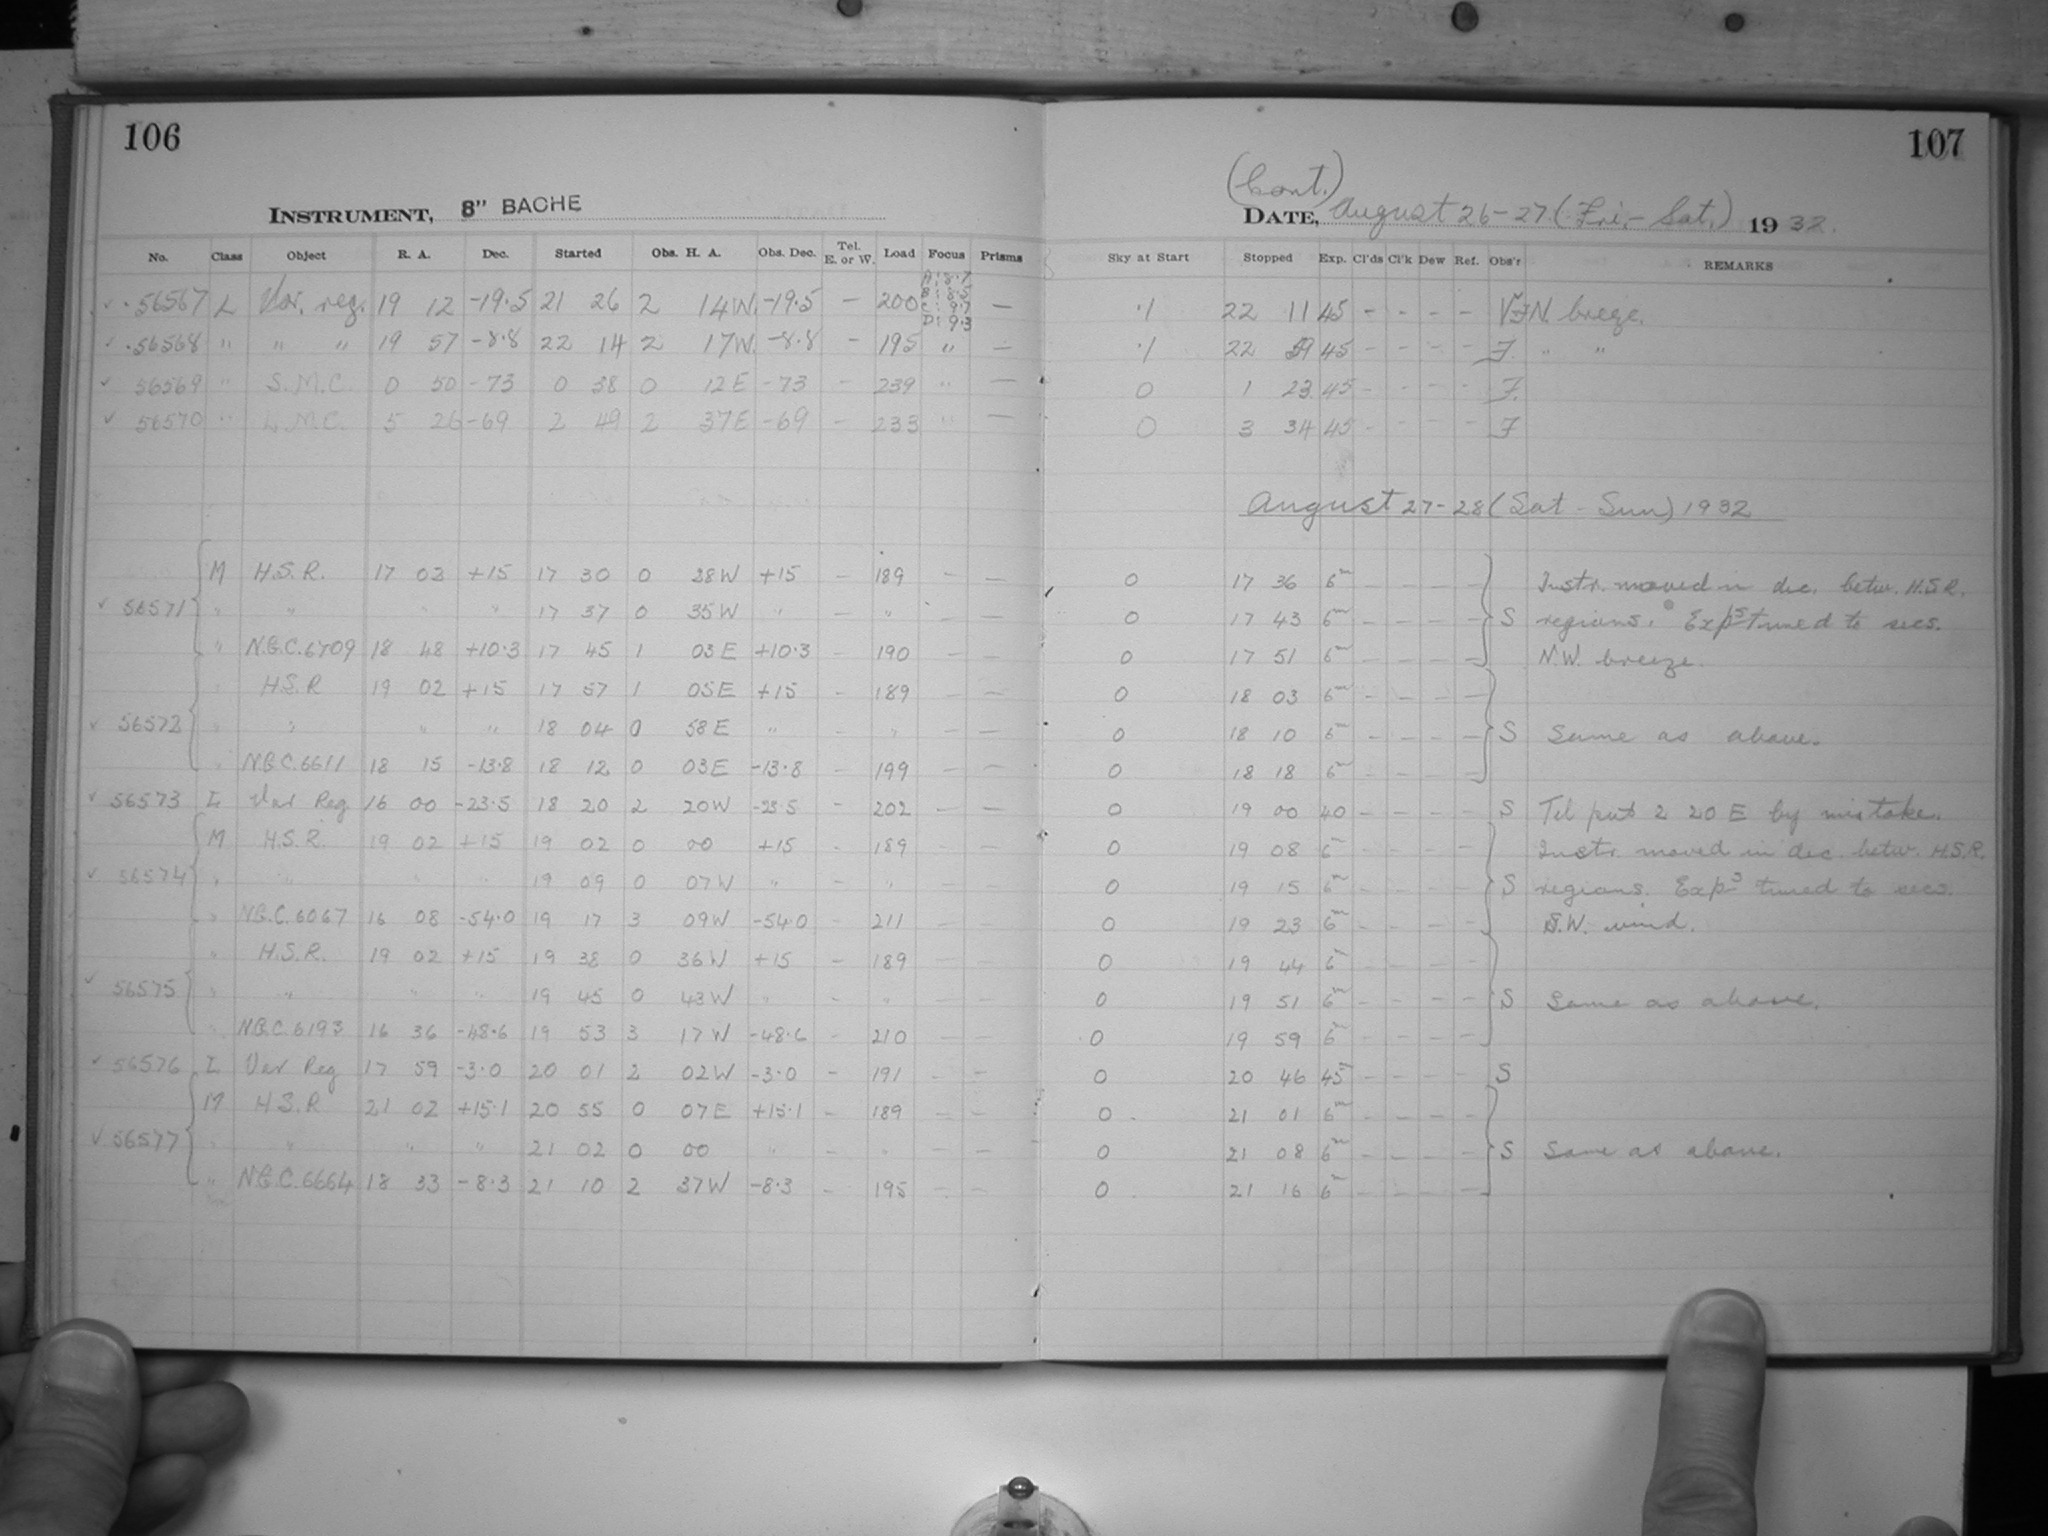 106
INSTRUMENT, 8" BACHE
No. Class Object R. A. Dec. Started Obs. H. A. Obs. Dec. Tel. E. or W. Load Focus Prisms
A: 8.7
B: 8.5
C: 9.7
D: 9.3
56567 L Var. reg. 19 12 -19.5 21 26 2 14W. -19.5 - 200 -
56568 " " " 19 57 -8.8 22 14 2 17W. -8.8 - 195 " -
56569 " S.M.C. 0 50 -73 0 38 0 12E -73 - 239 " -
56570 " L.M.C. 5 26 -69 2 49 2 37E -69 - 233 " -
M H.S.R. 17 03 +15 17 30 0 28W +15 - 189 - -
56571 " " " " 17 37 0 35W " - " - -
" N.G.C. 6709 18 48 +10.3 17 45 1 03E +10.3 - 190 - -
" H.S.R 19 02 +15 17 57 1 05E +15 - 189 - -
56572 " " " " 18 04 0 58E " - " - -
" N.G.C. 6611 18 15 -13.8 18 12 0 03E -13.8 - 199 - -
56573 L Var Reg 16 00 -23.5 18 20 2 20W -23.5 - 202 - -
M H.S.R. 19 02 +15 19 02 0 00 +15 - 189 - -
56574 " " " " 19 09 0 07W " - " - -
" N.G.C. 6067 16 08 -54.0 19 17 3 09W -54.0 - 211 - -
" H.S.R. 19 02 +15 19 38 0 36W +15 - 189 - -
56575 " " " " 19 45 0 43W " - " - -
" N.G.C. 6193 16 36 -48.6 19 53 3 17W -48.6 - 210 - -
56576 L Var Reg 17 59 -3.0 20 01 2 02W -3.0 - 191 - -
M H.S.R 21 02 +15.1 20 55 0 07E +15.1 - 189 - -
56577 " " " " 21 02 0 00 " - " - -
" N.G.C. 6664 18 33 -8.3 21 10 2 37W -8.3 - 195 - -
107
(Cont.)
DATE, August 26-27 (Fri.-Sat.) 1932.
Sky at Start Stopped Exp. Cl'ds Cl'k Dew Ref. Obs'r REMARKS
.1 22 11 45 - - - - N. breeze.
.1 22 59 45 - - - - F. " "
0 1 23 45 - - - - F.
0 3 34 45 - - - - F
August 27-28 (Sat - Sun) 1932
0 17 36 6m - - - - Instr. moved in dec. betw. H.S.R.
0 17 43 6m - - - - S regions. Exps timed to secs.
0 17 51 6m - - - - N.W. breeze.
0 18 03 6m - - - -
0 18 10 6m - - - - S Same as above.
0 18 18 6m - - - -
0 19 00 40 - - - - S Tel put 2 20 E by mistake.
0 19 08 6m - - - - Instr. moved in dec. betw. H.S.R.
0 19 15 6m - - - - S regions. Exps timed to secs.
0 19 23 6m - - - - S.W. wind.
0 19 44 6m - - - -
0 19 51 6m - - - - S Same as above.
0 19 59 6m - - - -
0 20 46 45 - - - - S
0 21 01 6m - - - -
0 21 08 6m - - - - S Same as above.
0 21 16 6m - - - -